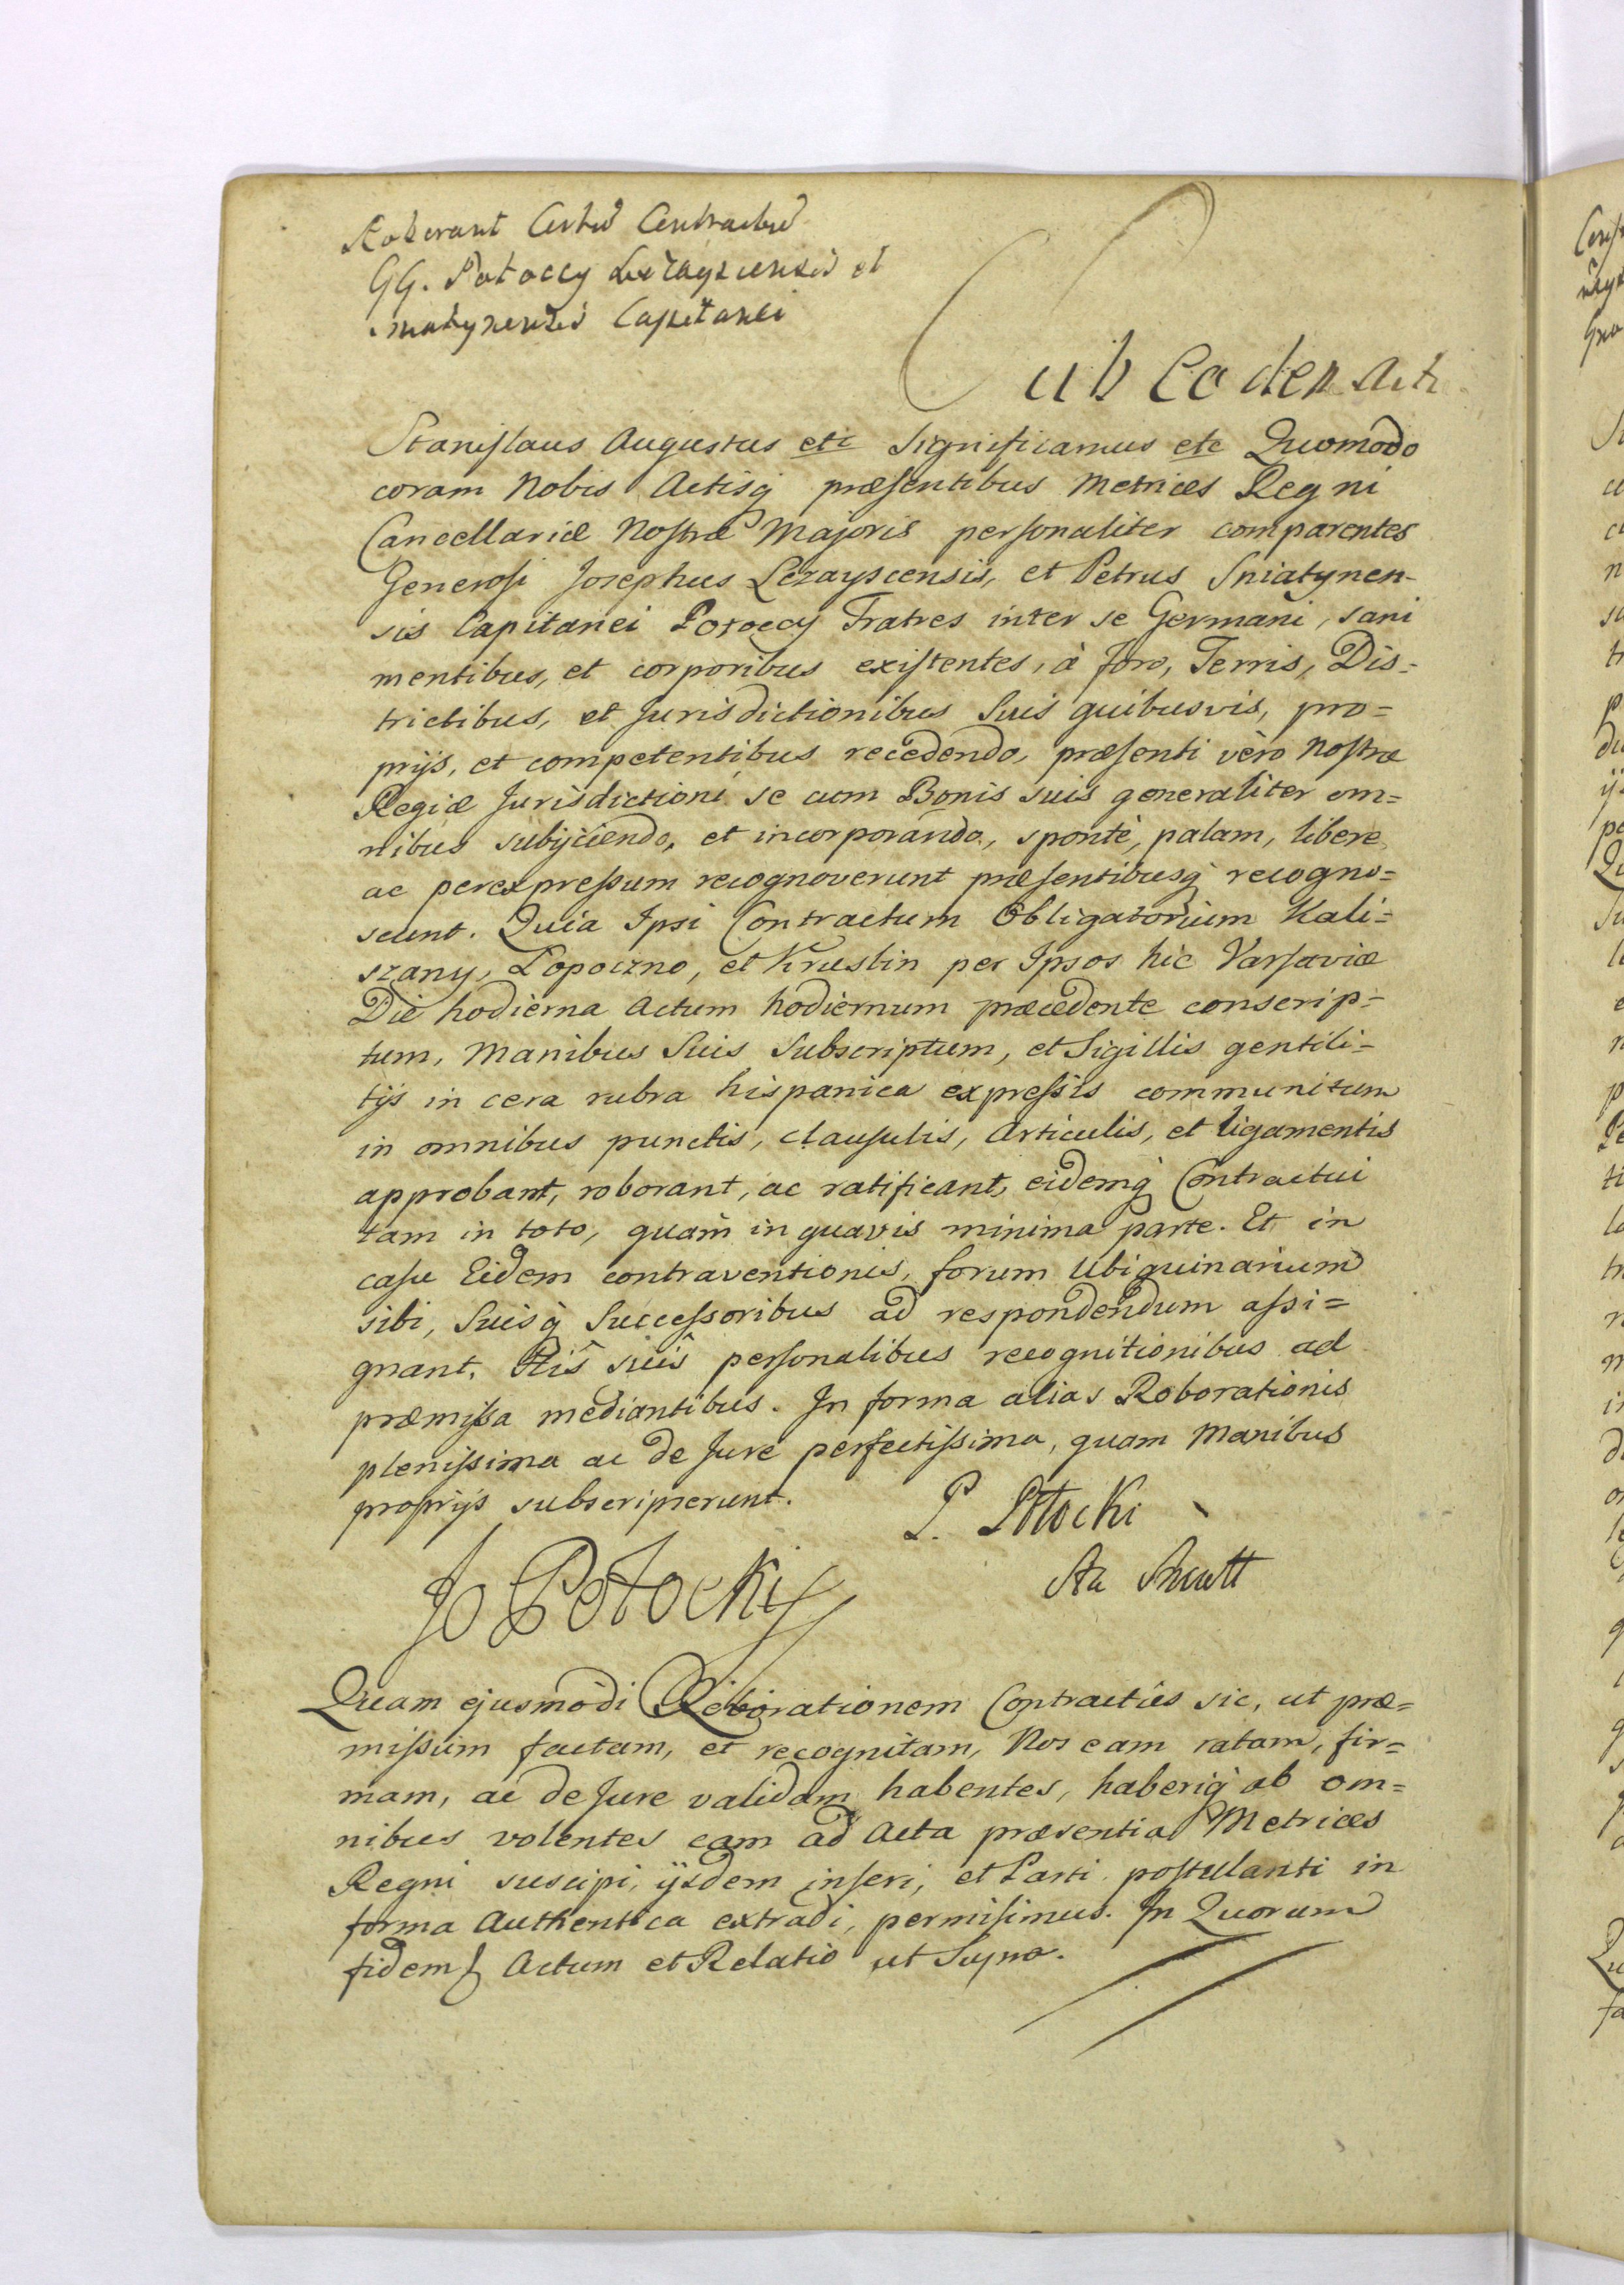 Roborant Certũ Contractũ
GG. Potoccy Leżayscensis et
Sniatynensis Capitanei
Sub eodem Actu
Stanislaus Augustus etc Significamus etc Quomodo
coram Nobis Actisq́ præsentibus Metrices Regni
Cancellariæ Nostræ Majoris personaliter comparentes
Generosi Josephus Lezayscensis, et Petrus Sniatynen-
sis Capitanei Potoccy Fratres inter se Germani, sani
mentibus, et corporibus existentes, à Foro, Terris, Dis=
trictibus, et Jurisdictionibus Suis quibusvis, pro=
prijs, et competentibus recedendo, præsenti verò Nostræ
Regiæ Jurisdictioni se cum Bonis suis generaliter om=
nibus subijciendo, et incorporando, spontè, palam, libere
ac per expressum recognoverunt præsentibusq́ recogno=
scunt. Quia Ipsi Contractum Obligatorium Kali=
szany, Łopoczno, et Kruslin per Ipsos hic Varsaviæ
Die hodierna Actum hodiernum præcedente conscrip=
tum, Manibus Suis Subscriptum, et Sigillis gentili=
tijs in cera rubra hispanica expressis communitum
in omnibus punctis, clausulis, Articulis, et ligamentis
approbant, roborant, ac ratificant, eidemq́ Contractui
tam in toto, quàm in quavis minima parte. Et in
casu Eidem contraventionis, forum Ubiquinarium
sibi, Suisq́ Successoribus ad respondendum assi=
gnant. Hiŝ suiŝ personalibus recognitionibus ad
præmissa mediantibus. In forma alias Roborationis
plenissima ac de Jure perfectissima, quam Manibus
proprijs subscripserunt.
P. Potocki
Jo Potocki
Quam ejusmodi Roborationem Contractûs sic, ut præ=
missum factam, et recognitam, Nos eam ratam, fir=
mam, ac de Jure validam habentes, haberiq́ ab om=
nibus volentes eam ad Acta præsentia Metrices
Regni suscipi, ijsdem inseri, et Parti postulanti in
forma Authentica extradi, permisimus. In Quorum
fidem Actum et Relatio ut Supra.